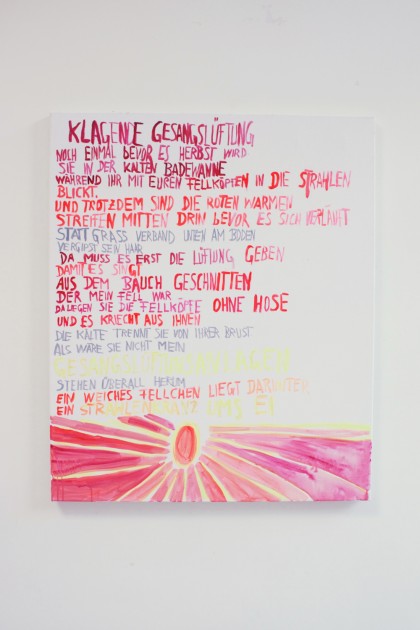 KLAGENDE GESANGSLÜFTUNG
NOCH EINMAL BEVOR ES HERBST WIRD
SIE IN DER KALTEN BADEWANNE
WÄHREND IHR MIT EUREN FELLKÖPFEN IN DIE STRAHLEN
BLICKT.
UND TROTZDEM SIND DIE ROTEN WARMEN
STREIFEN MITTEN DRIN BEVOR ES SICH
STATT GRASS VERBAND UNTEN AM BODEN
VERGIPST SEIN HAAR
DA MUSS ES ERST DIE LÜFTUNG GEBEN
DAMIT ES SINGT
AUS DEM BAUCH GESCHNITTEN
DER MEIN FELL WAR
DA LIEGEN SIE DIE FELLKÖPFE OHNE HOSE
UND ES KRIECHT AUS IHNEN
DIE KÄLTE TRENNT SIE VON IHRER BRUST
ALS WÄRE SIE NICHT MEIN
STEHEN ÜBERALL HERUM
EIN WEICHES FELLCHEN LIEGT DARUNTER
EIN UMS EI